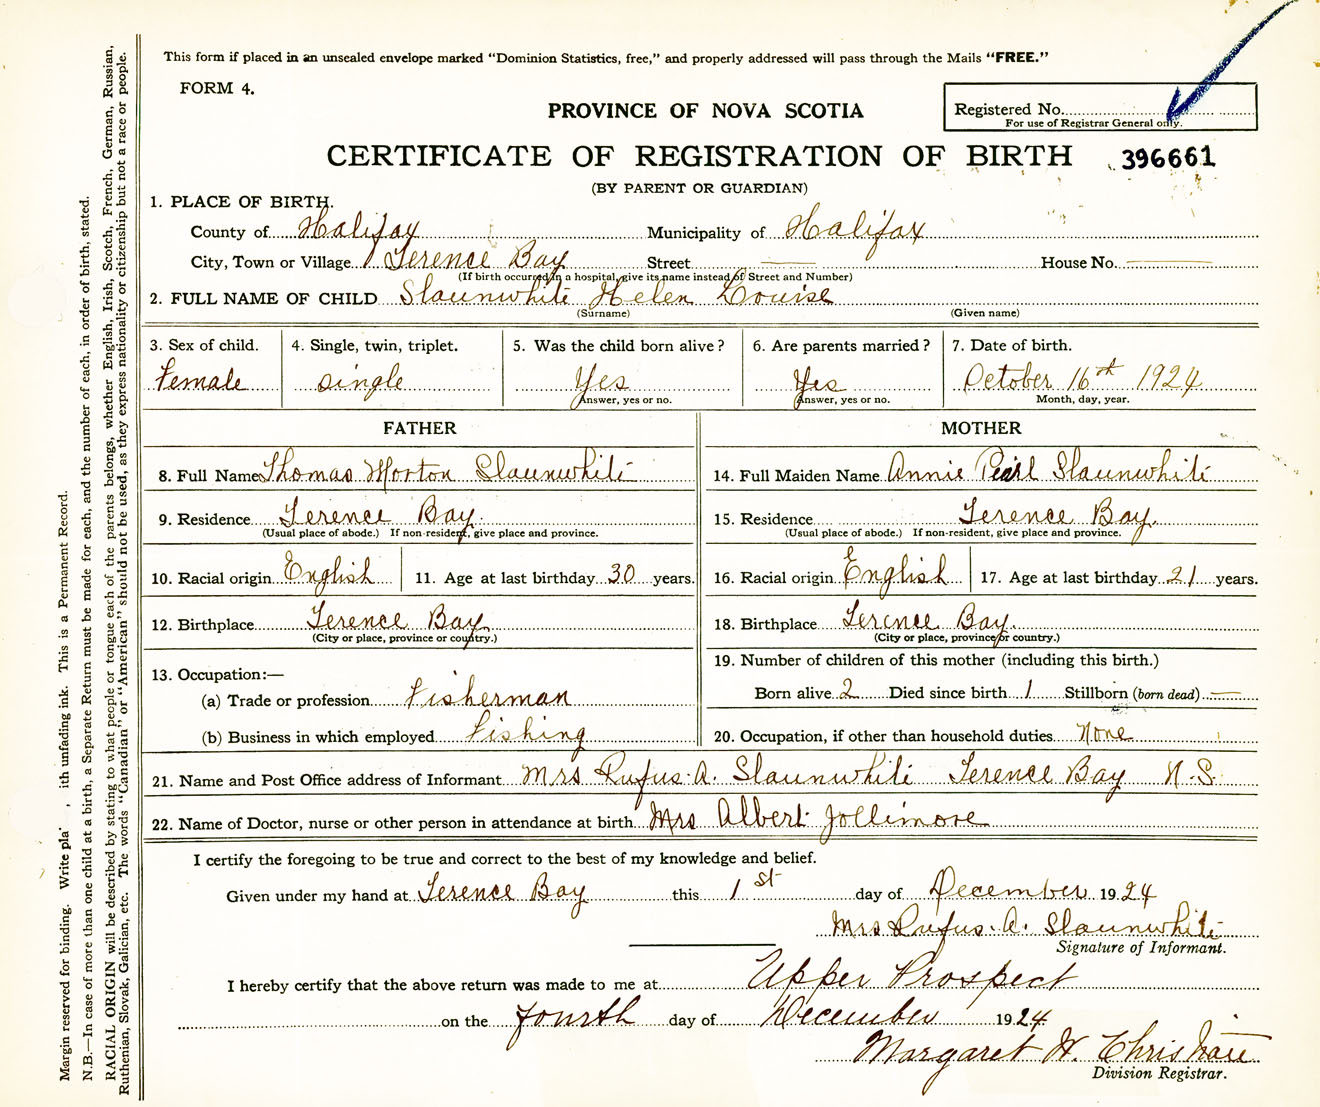 This form if placed in an unsealed envelope marked "Dominion Statistics, free," and properly addressed will pass through the Mails "FREE."
FORM 4.
PROVINCE OF NOVA SCOTIA
Registered No.
For use of Registrar General only.
CERTIFICATE OF REGISTRATION OF BIRTH 396661
(BY PARENT OR GUARDIAN)
1. PLACE OF BIRTH.
County of Halifax Municipality of Halifax
City, Town or Village Terence Bay Street — House No. —
(If birth occurred in a hospital, give its name instead of Street and Number)
2. FULL NAME OF CHILD Slaunwhite Helen Louise
(Surname) (Given name)
3. Sex of child. 4. Single, twin, triplet. 5. Was the child born alive? 6. Are parents married? 7. Date of birth.
Female single Yes Yes October 16th 1924
Answer, yes or no. Answer, yes or no. Month, day, year.
FATHER MOTHER
8. Full Name Thomas Morton Slaunwhite 14. Full Maiden Name Annie Pearl Slaunwhite
9. Residence Terence Bay. 15. Residence Terence Bay.
(Usual place of abode.) If non-resident, give place and province. (Usual place of abode.) If non-resident, give place and province.
10. Racial origin English 11. Age at last birthday 30 years. 16. Racial origin English 17. Age at last birthday 21 years.
12. Birthplace Terence Bay 18. Birthplace Terence Bay.
(City or place, province or country.) (City or place, province or country.)
13. Occupation:— 19. Number of children of this mother (including this birth.)
(a) Trade or profession Fisherman Born alive 2 Died since birth 1 Stillborn (born dead) —
(b) Business in which employed Fishing 20. Occupation, if other than household duties None
21. Name and Post Office address of Informant Mrs Rufus. A. Slaunwhite Terence Bay N.S.
22. Name of Doctor, nurse or other person in attendance at birth Mrs Albert Jollimore
I certify the foregoing to be true and correct to the best of my knowledge and belief.
Given under my hand at Terence Bay this 1st day of December 1924
Mrs Rufus. A. Slaunwhite
Signature of Informant.
I hereby certify that the above return was made to me at Upper Prospect
on the fourth day of December 1924
Margaret H. Christian
Division Registrar.
Margin reserved for binding. Write pla , ith unfading ink. This is a Permanent Record.
N.B.—In case of more than one child at a birth, a Separate Return must be made for each, and the number of each, in order of birth, stated.
RACIAL ORIGIN will be described by stating to what people or tongue each of the parents belongs, whether English, Irish, Scotch, French, German, Russian,
Ruthenian, Slovak, Galician, etc. The words "Canadian" or "American" should not be used, as they express nationality or citizenship but not a race or people.